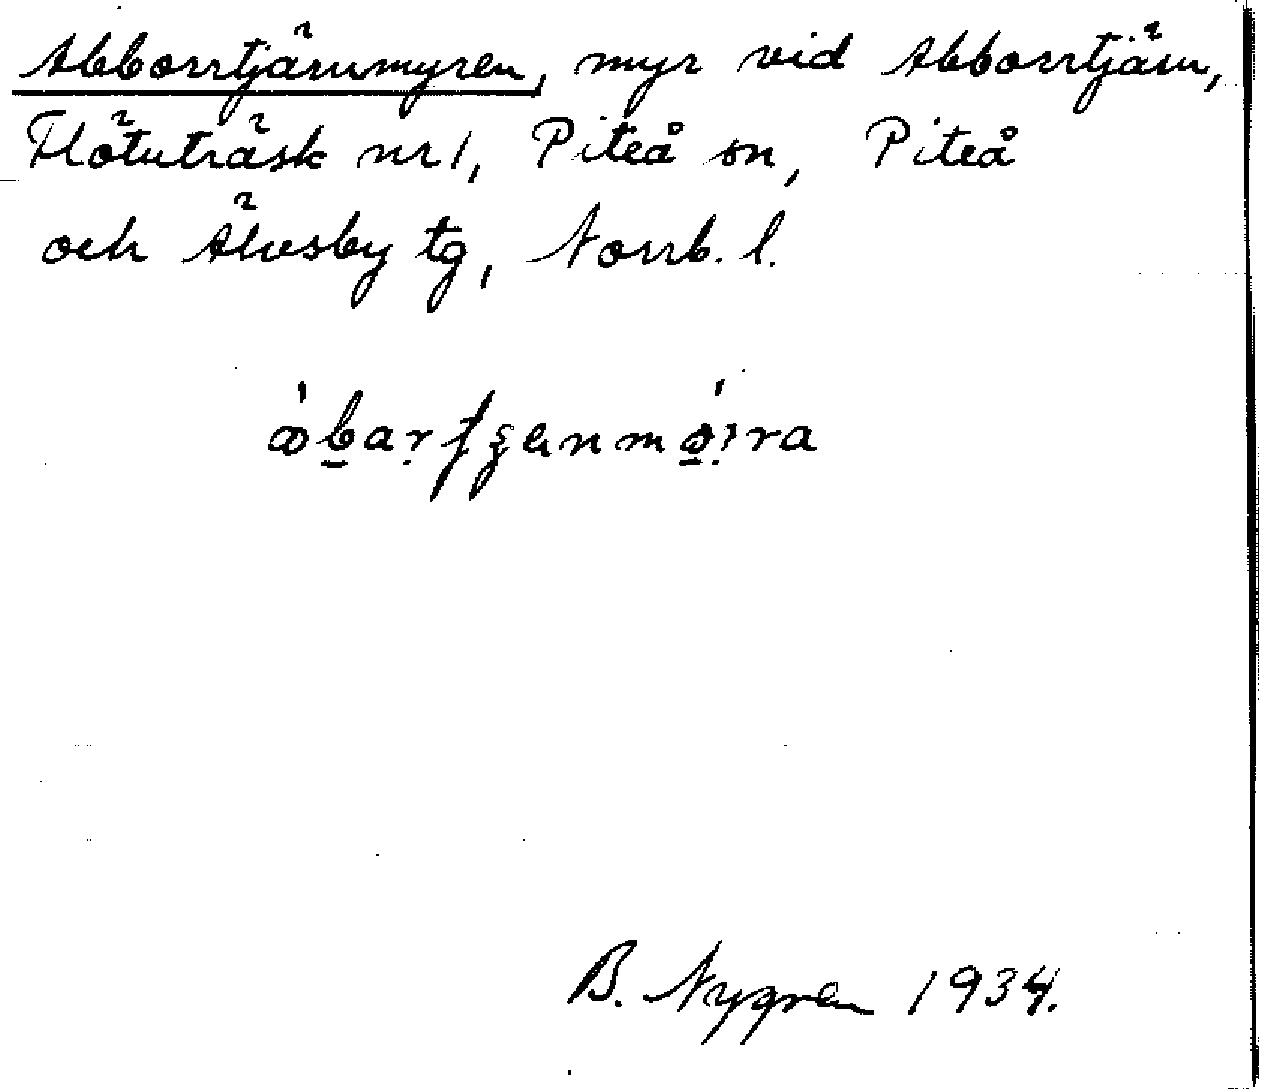 Abborrtjärnmyren, myr vid Abborrtjärn,
Flötuträsk nr 1, Piteå sn, Piteå
och Älvsby tg, Norrb. l.
B. Nygren 1934.